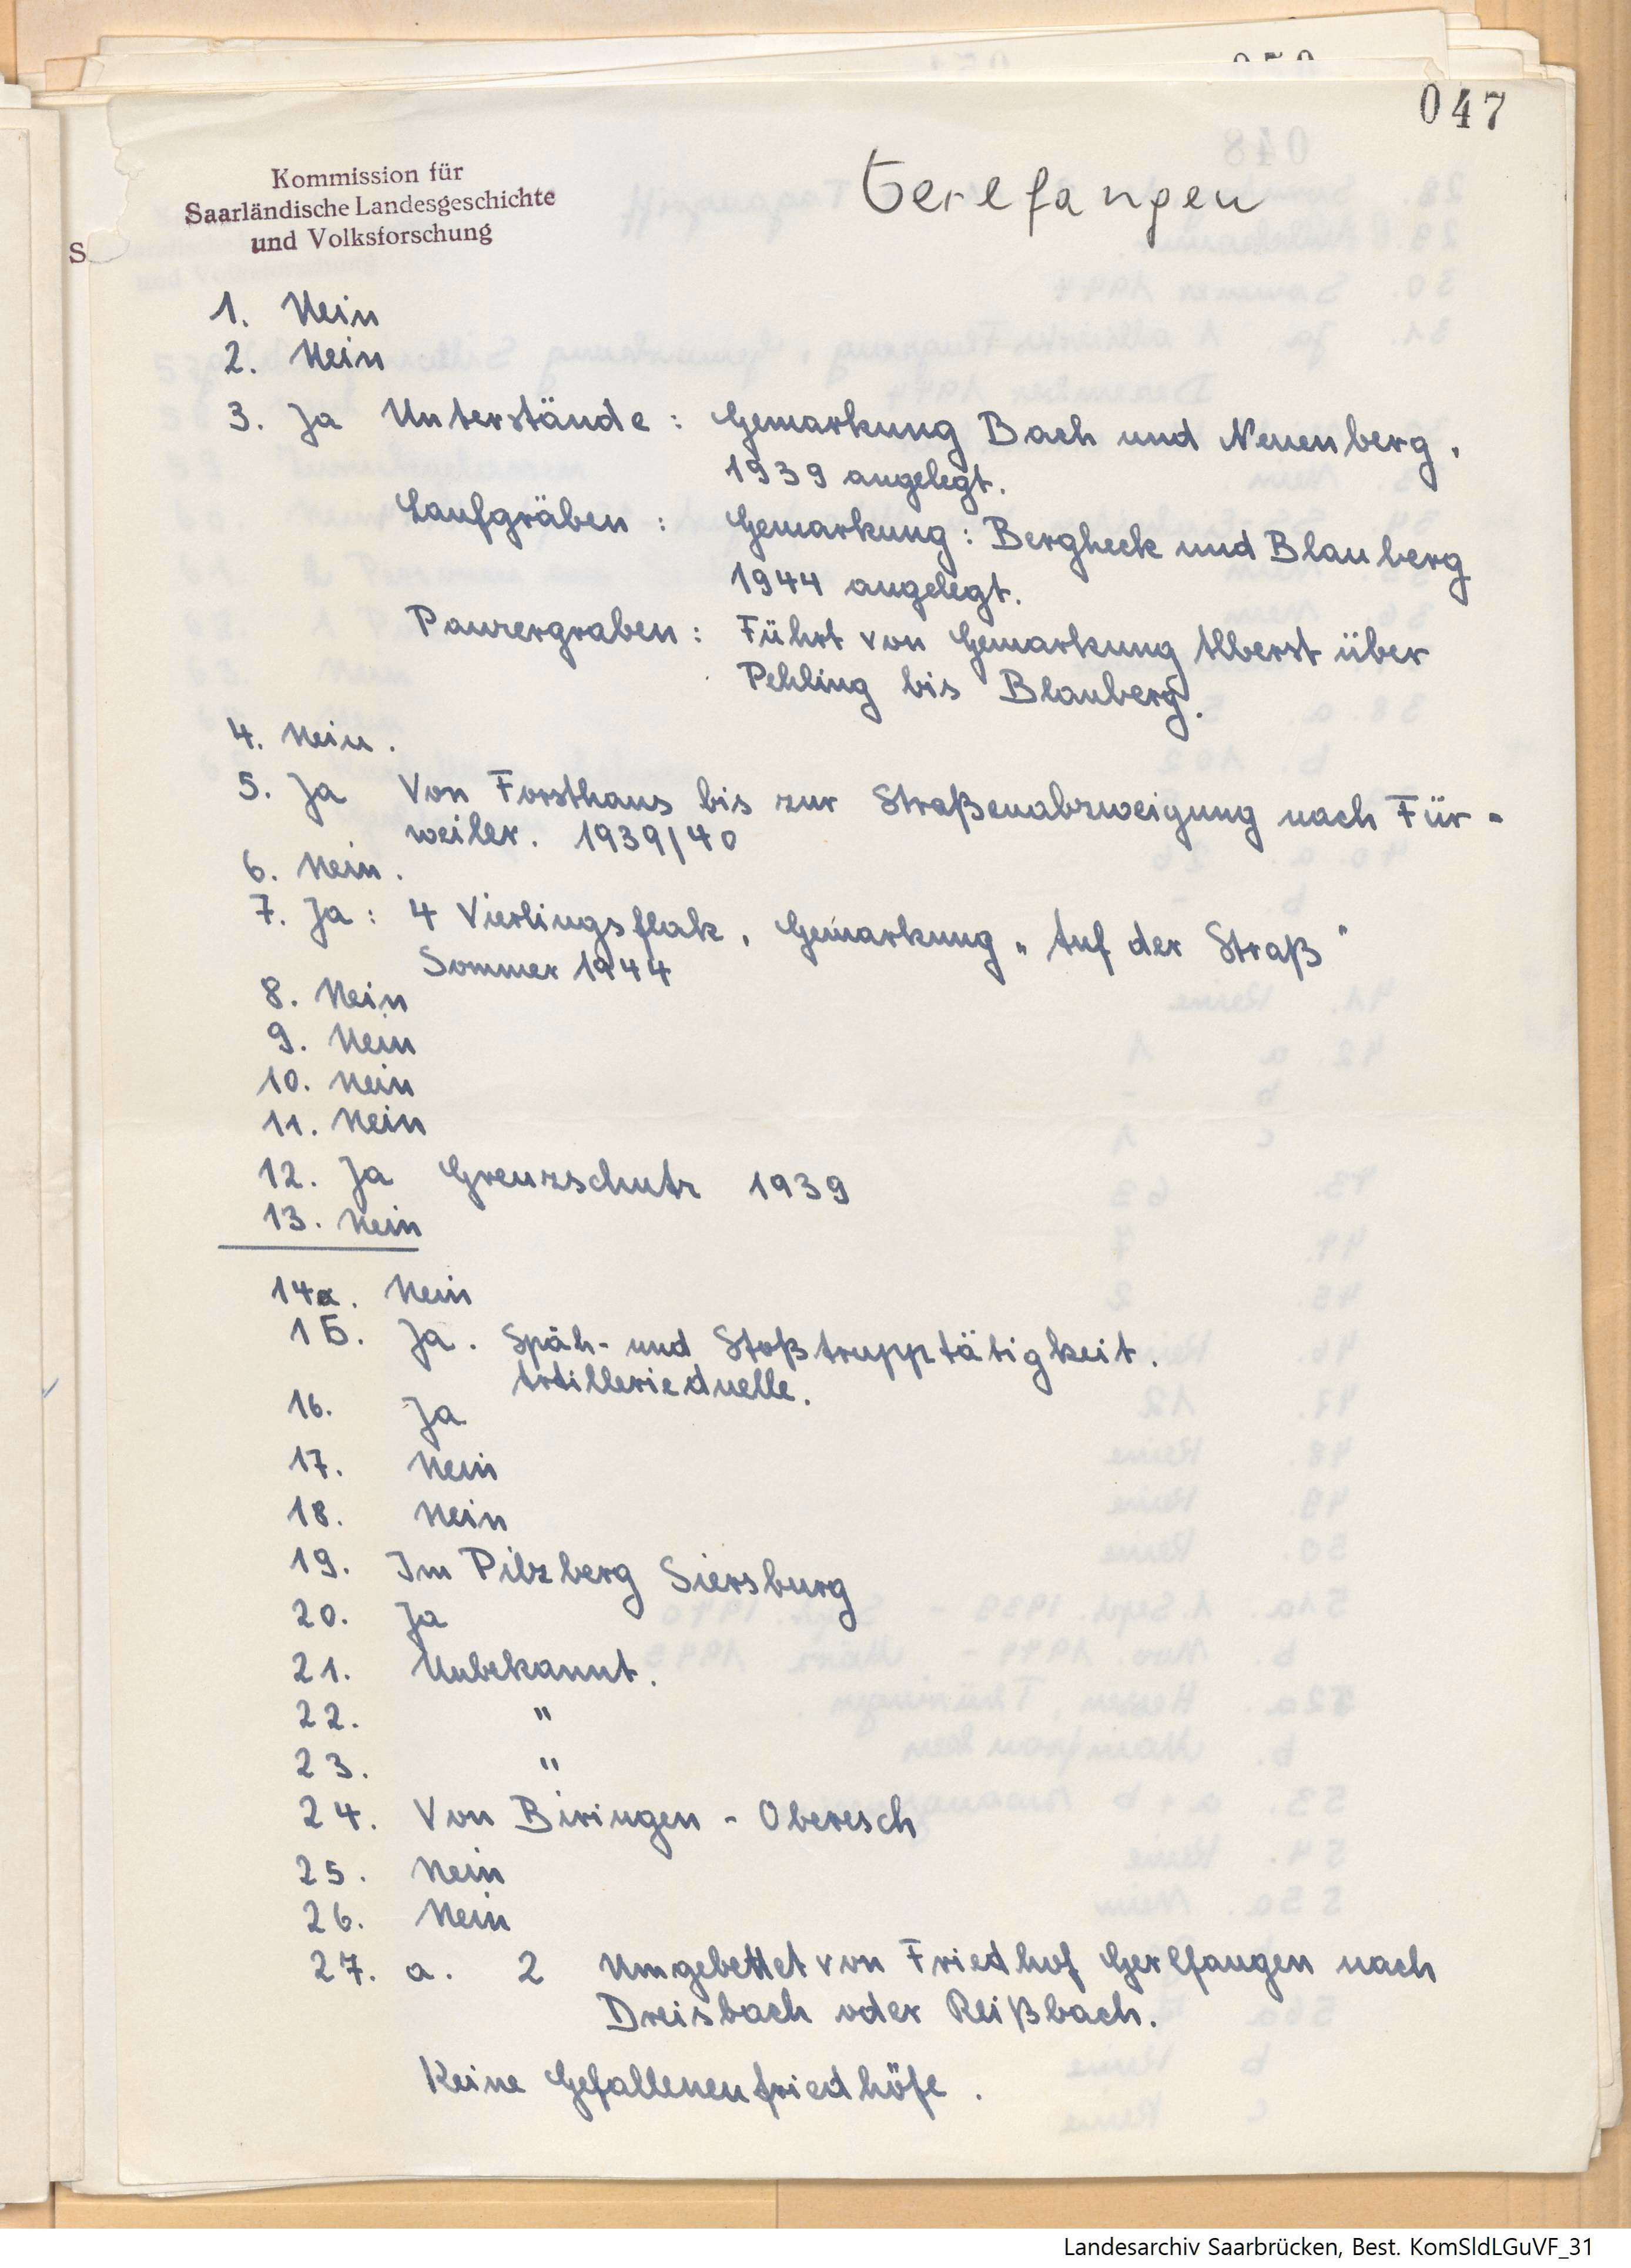 047
Kommission für
Saarländische Landesgeschichte
und Volksforschung
Gerlfangen
1. Nein
2. Nein
3. Ja Unterstände : Gemarkung Bach und Neuenberg,
1939 angelegt.
Laufgräben : Gemarkung : Bergheck und Blauberg
1944 angelegt.
Panzergraben : Führt von Gemarkung Alberst über
Pehling bis Blauberg.
4. Nein.
5. Ja Von Forsthaus bis zur Straßenabzweigung nach Für-
weiler. 1939/40
6. Nein.
7. Ja : 4 Vierlingsflak, Gemarkung „Auf der Straß"
Sommer 1944
8. Nein
9. Nein
10. Nein
11. Nein
12. Ja Grenzschutz 1939
13. Nein
14a. Nein
15. Ja. Späh- und Stoßtrupptätigkeit.
Artillerieduelle.
16. Ja
17. Nein
18. Nein
19. Im Pilzberg Siersburg
20. Ja
21. Unbekannt.
22. "
23. "
24. Von Biringen - Oberesch
25. Nein
26. Nein
27. a. 2 Umgebettet von Friedhof Gerlfangen nach
Dreisbach oder Reißbach.
Keine Gefallenenfriedhöfe.
Landesarchiv Saarbrücken, Best. KomSldLGuVF_31